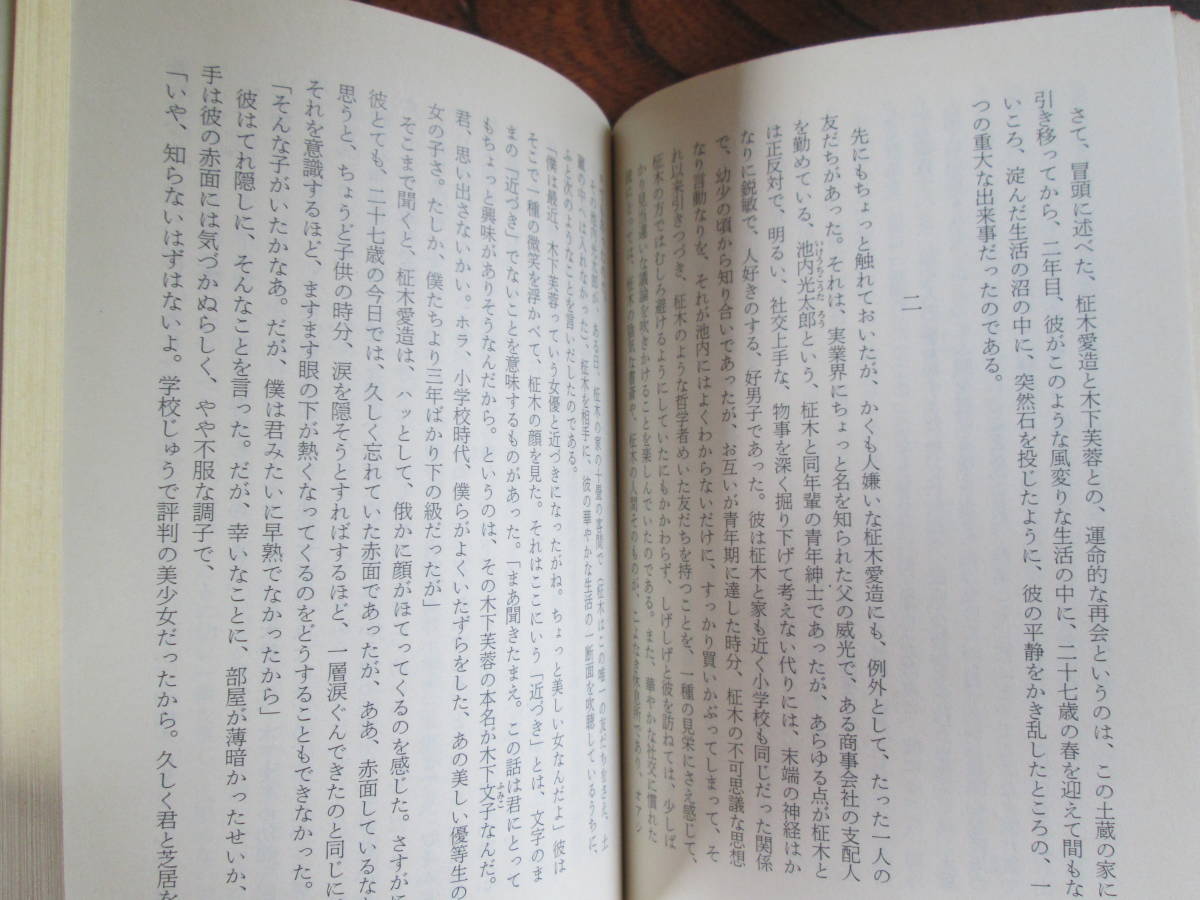 さて、冒頭に述べた、柾木愛造と木下芙蓉との、運命的な再会というのは、この土蔵の家に
引き移ってから、二年目、彼がこのような風変りな生活の中に、二十七歳の春を迎えて間もな
いころ、淀んだ生活の沼の中に、突然石を投じたように、彼の平静をかき乱したところの、一
つの重大な出来事だったのである。
二
先にもちょっと触れておいたが、かくも人嫌いな柾木愛造にも、例外として、たった一人の
友だちがあった。それは、実業界にちょっと名を知られた父の威光で、ある商事会社の支配人
を勤めている、池内光太郎という、柾木と同年輩の青年紳士であったが、あらゆる点が柾木と
いけうちこうたろう
は正反対で、明るい、社交上手な、物事を深く掘り下げて考えない代りには、末端の神経はか
なりに鋭敏で、人好きのする、好男子であった。彼は柾木と家も近く小学校も同じだった関係
で、幼少の頃から知り合いであったが、お互いが青年期に達した時分、柾木の不可思議な思想
なり言動なりを、それが池内にはよくわからないだけに、すっかり買いかぶってしまって、そ
れ以来引きつづき、柾木のような哲学者めいた友だちを持つことを、一種の見栄にさえ感じて、
柾木の方ではむしろ避けるようにしていたにもかかわらず、しげしげと彼を訪ねては、少しば
かり見当違いな議論を吹きかけることを楽しんでいたのである。また、華やかな社交に慣れた
柾木の陰気な書斎や、柾木の人間そのものが、
その池内光太郎が、ある日、柾木の家の十畳の客間で（柾木はこの唯一の友だちをさえ、土
蔵の中へは入れなかった）、柾木を相手に、彼の華やかな生活の一断面を吹聴しているうちに、
ふと次のようなことを言いだしたのである。
「僕は最近、木下芙蓉っていう女優と近づきになったがね。ちょっと美しい女なんだよ」彼は
そこで一種の微笑を浮かべて、柾木の顔を見た。それはここにいう「近づき」とは、文字のま
まの「近づき」でないことを意味するものがあった。「まあ聞きたまえ。この話は君にとって
もちょっと興味がありそうなんだから。というのは、その木下芙蓉の本名が木下文子なんだ。
ふみこ
君、思い出さないかい。ホラ、小学校時代、僕らがよくいたずらをした、あの美しい優等生の
女の子さ。たしか、僕たちより三年ばかり下の級だったが」
そこまで聞くと、柾木愛造は、ハッとして、俄かに顔がほてってくるのを感じた。さすがに
彼とても、二十七歳の今日では、久しく忘れていた赤面であったが、ああ、赤面しているな
思うと、ちょうど子供の時分、涙を隠そうとすればするほど、一層涙ぐんできたのと同じに
それを意識するほど、ますます眼の下が熱くなってくるのをどうすることもできなかった。
「そんな子がいたかなあ。だが、僕は君みたいに早熟でなかったから」
彼はてれ隠しに、そんなことを言った。だが、幸いなことに、部屋が薄暗かったせいか、
手は彼の赤面には気づかぬらしく、やや不服な調子で、
「いや、知らないはずはないよ。学校じゅうで評判の美少女だったから。久しく君と芝居を